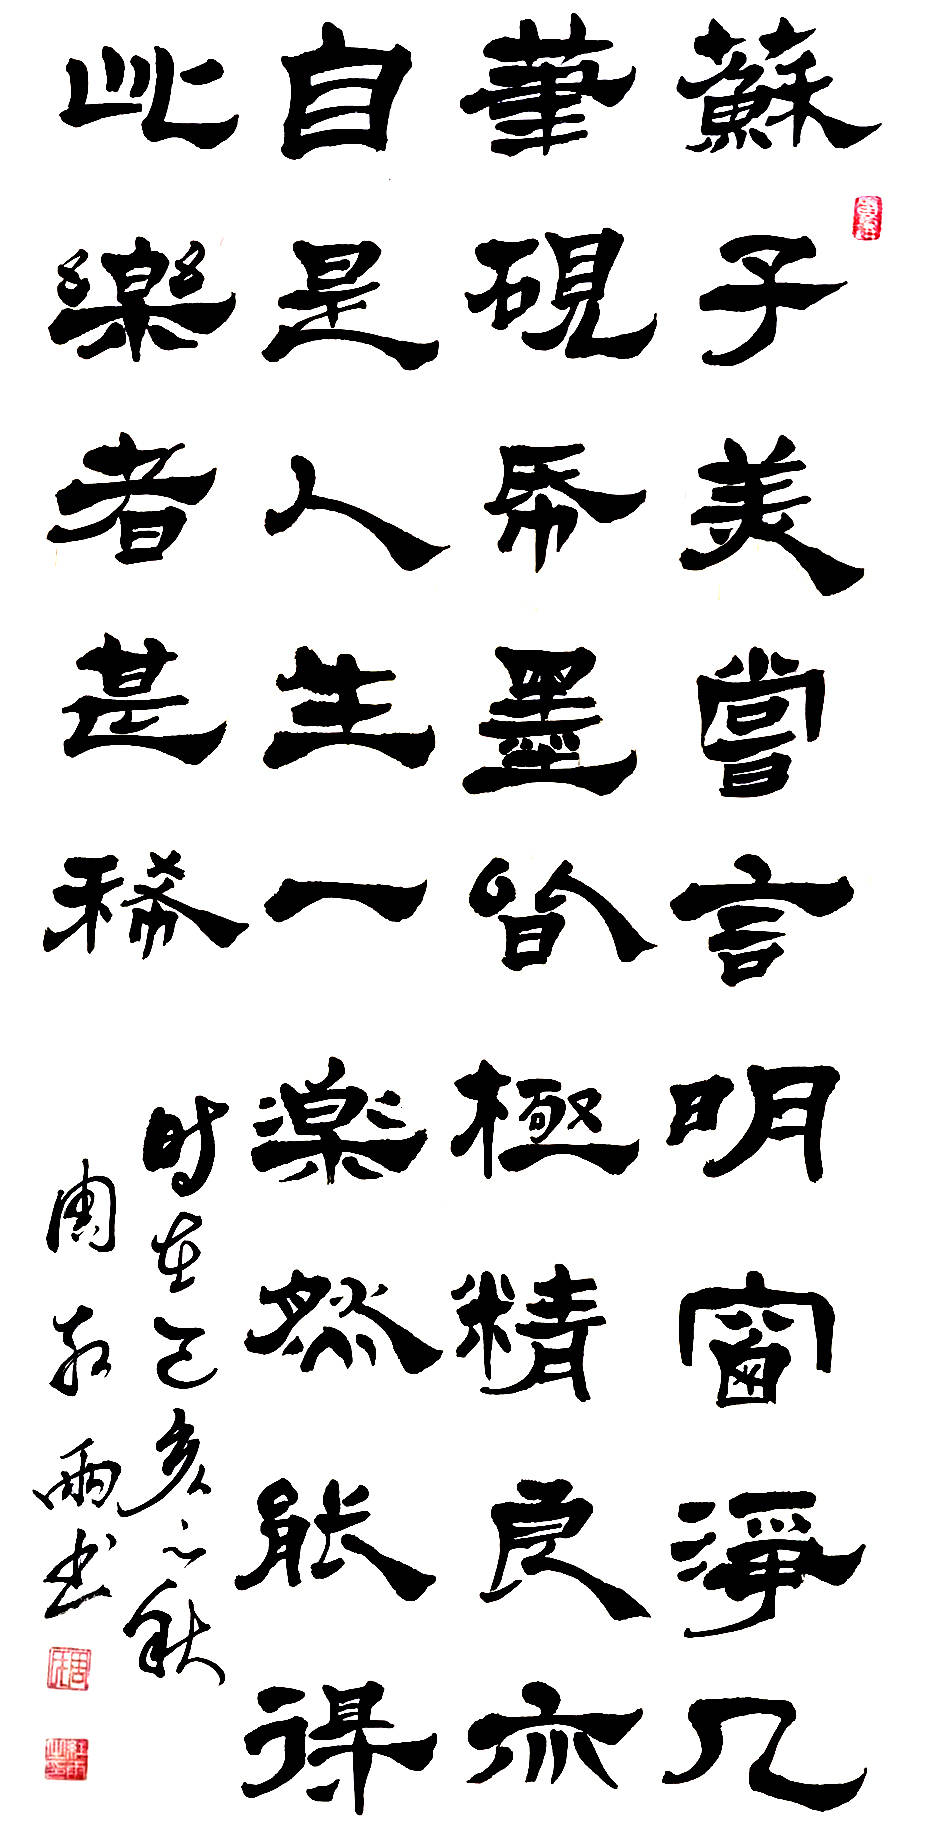 蘇子美嘗言明窗淨几
筆硯帋墨皆極精良亦
自是人生一樂然能得
此樂者甚稀
时在己亥之秋
周红雨书